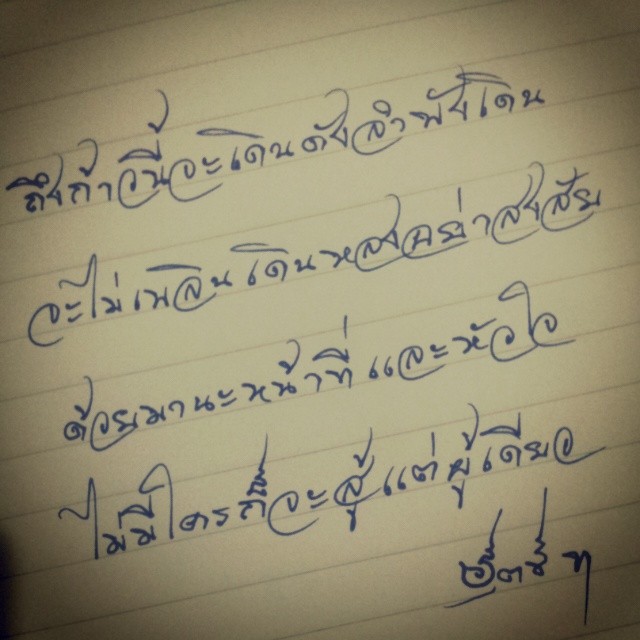 ถึงก้าวนี้จะเดินดังลำพังเดิน
จะไม่เพลินเดินหลงอย่าสงสัย
ด้วยมานะหน้าที่และหัวใจ
ไม่มีใครก็จะสู้แต่ผู้เดียว